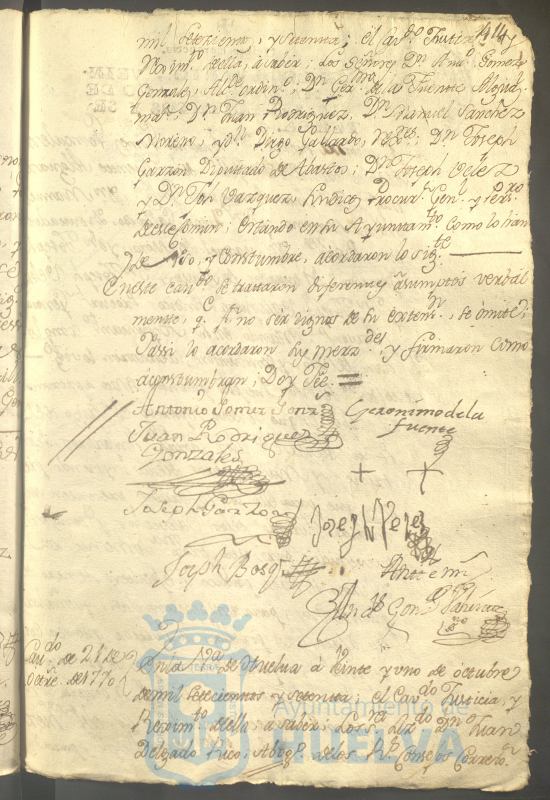 mil setezientos, y setenta; el Cavdo. Justizia, y
Reximto. de ella, a saver: los Señores Dn. Anto. Gomez
Gonzales, Alcde. ordino.; Dn. Germo. de la Fuente Alguaz.
mar.; Dn. Juan Rodriguez, Dn. Manuel Sanchez
Moreno, y Dn. Diego Gallardo, Rexres.; Dn. Joseph
Garzon Diputado de Abastos; Dn. Joseph Velez
y Dn. Jph Vazquez, Sindico Procurr. Genl. y Persro.
deste Comun; Estando en su Ayuntamto. como lo han
de Uso, y Constumbre, acordaron lo sigte.
En este Cavdo. se trataron diferentes asumptos verbal
mente, qe. pr. no ser dignos de su extenn., se omiten;
Y assi lo acordaron sus merzdes. y firmaron como
aconstumbran; Doy Fee. =
Antonio Gomez Gonzs
Geronimo de la
Fuente
Juan Rodriguez
Gonzales
Joseph Garzon
Joseph Velez
Joseph Bosq
Ante mi
Cavdo. de 21 de
Octre. de 1770
En la Va. de Huelva a veinte y uno de octubre
de mil setecientos y setenta; el Cavdo. Justicia, y
Reximto. de ella a saber: Los
Juan
Delgado Rico, Abogo. de los Rs. Consejos Correxor.
Ayuntamiento de
HUELVA